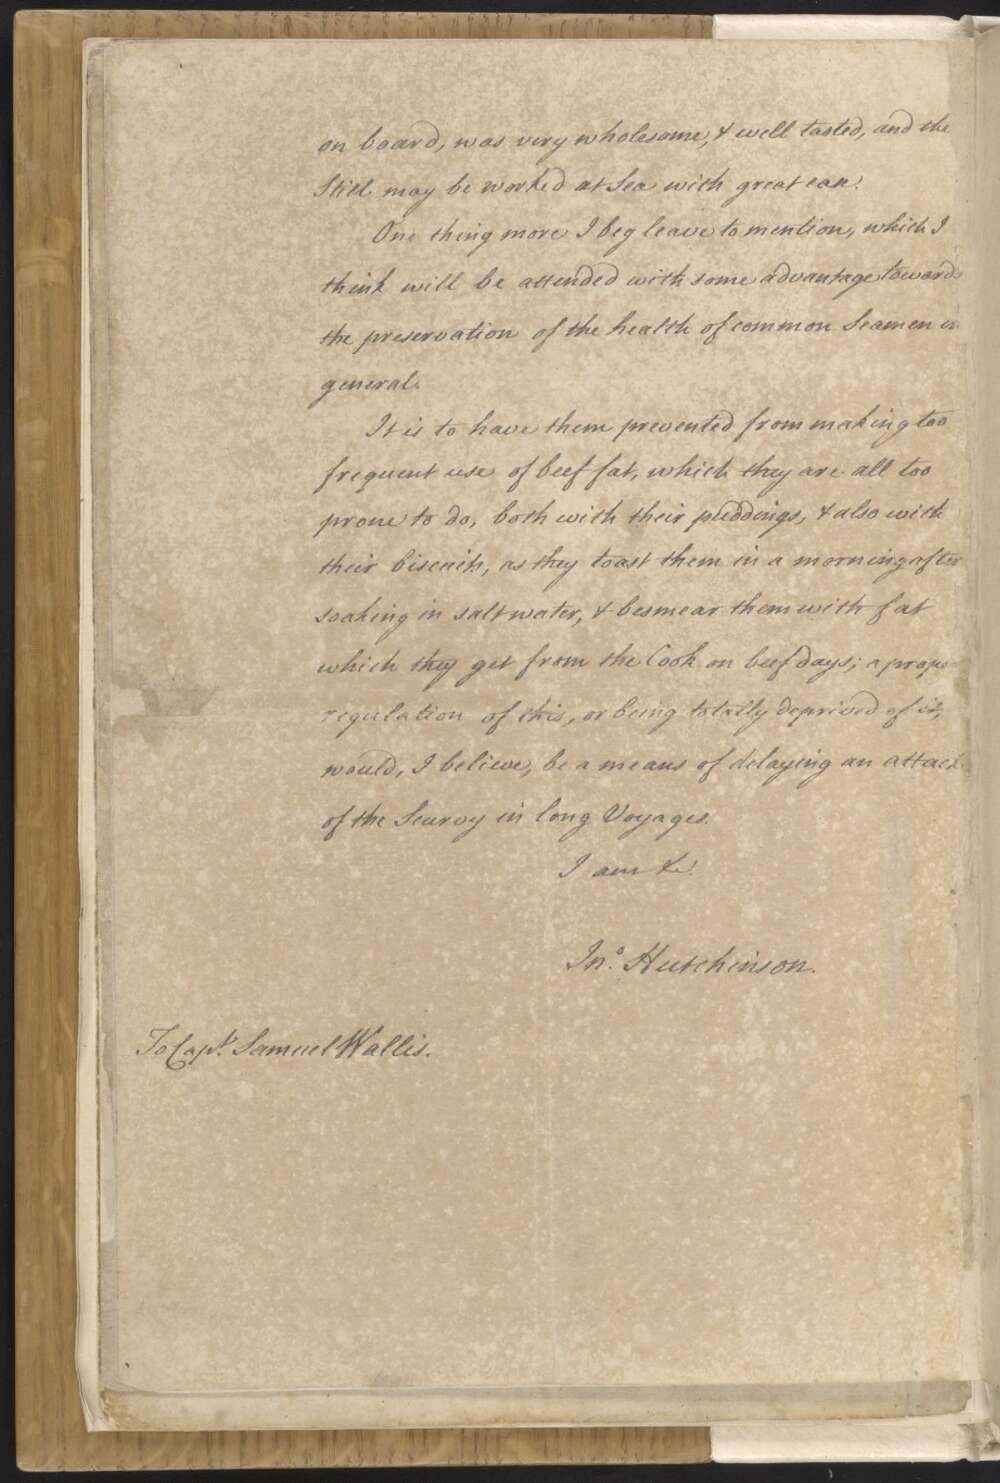 on board, was very wholesome, & well tasted, and the
Still may be worked at Sea with great ease.
One thing more I beg leave to mention, which I
think will be attended with some advantage towards
the preservation of the health of common Seamen in
general.
It is to have them prevented from making too
frequent use of beef fat, which they are all too
prone to do, both with their puddings, & also with
their biscuits, as they toast them in a morning after
soaking in salt water, & besmear them with fat
which they get from the Cook on beef days; a prope
regulation of this, or being totally deprived of it,
would, I believe, be a means of delaying an attack
of the Scurvy in long Voyages.
I am &c.
Jno. Hutchinson.
To Capt. Samuel Wallis.